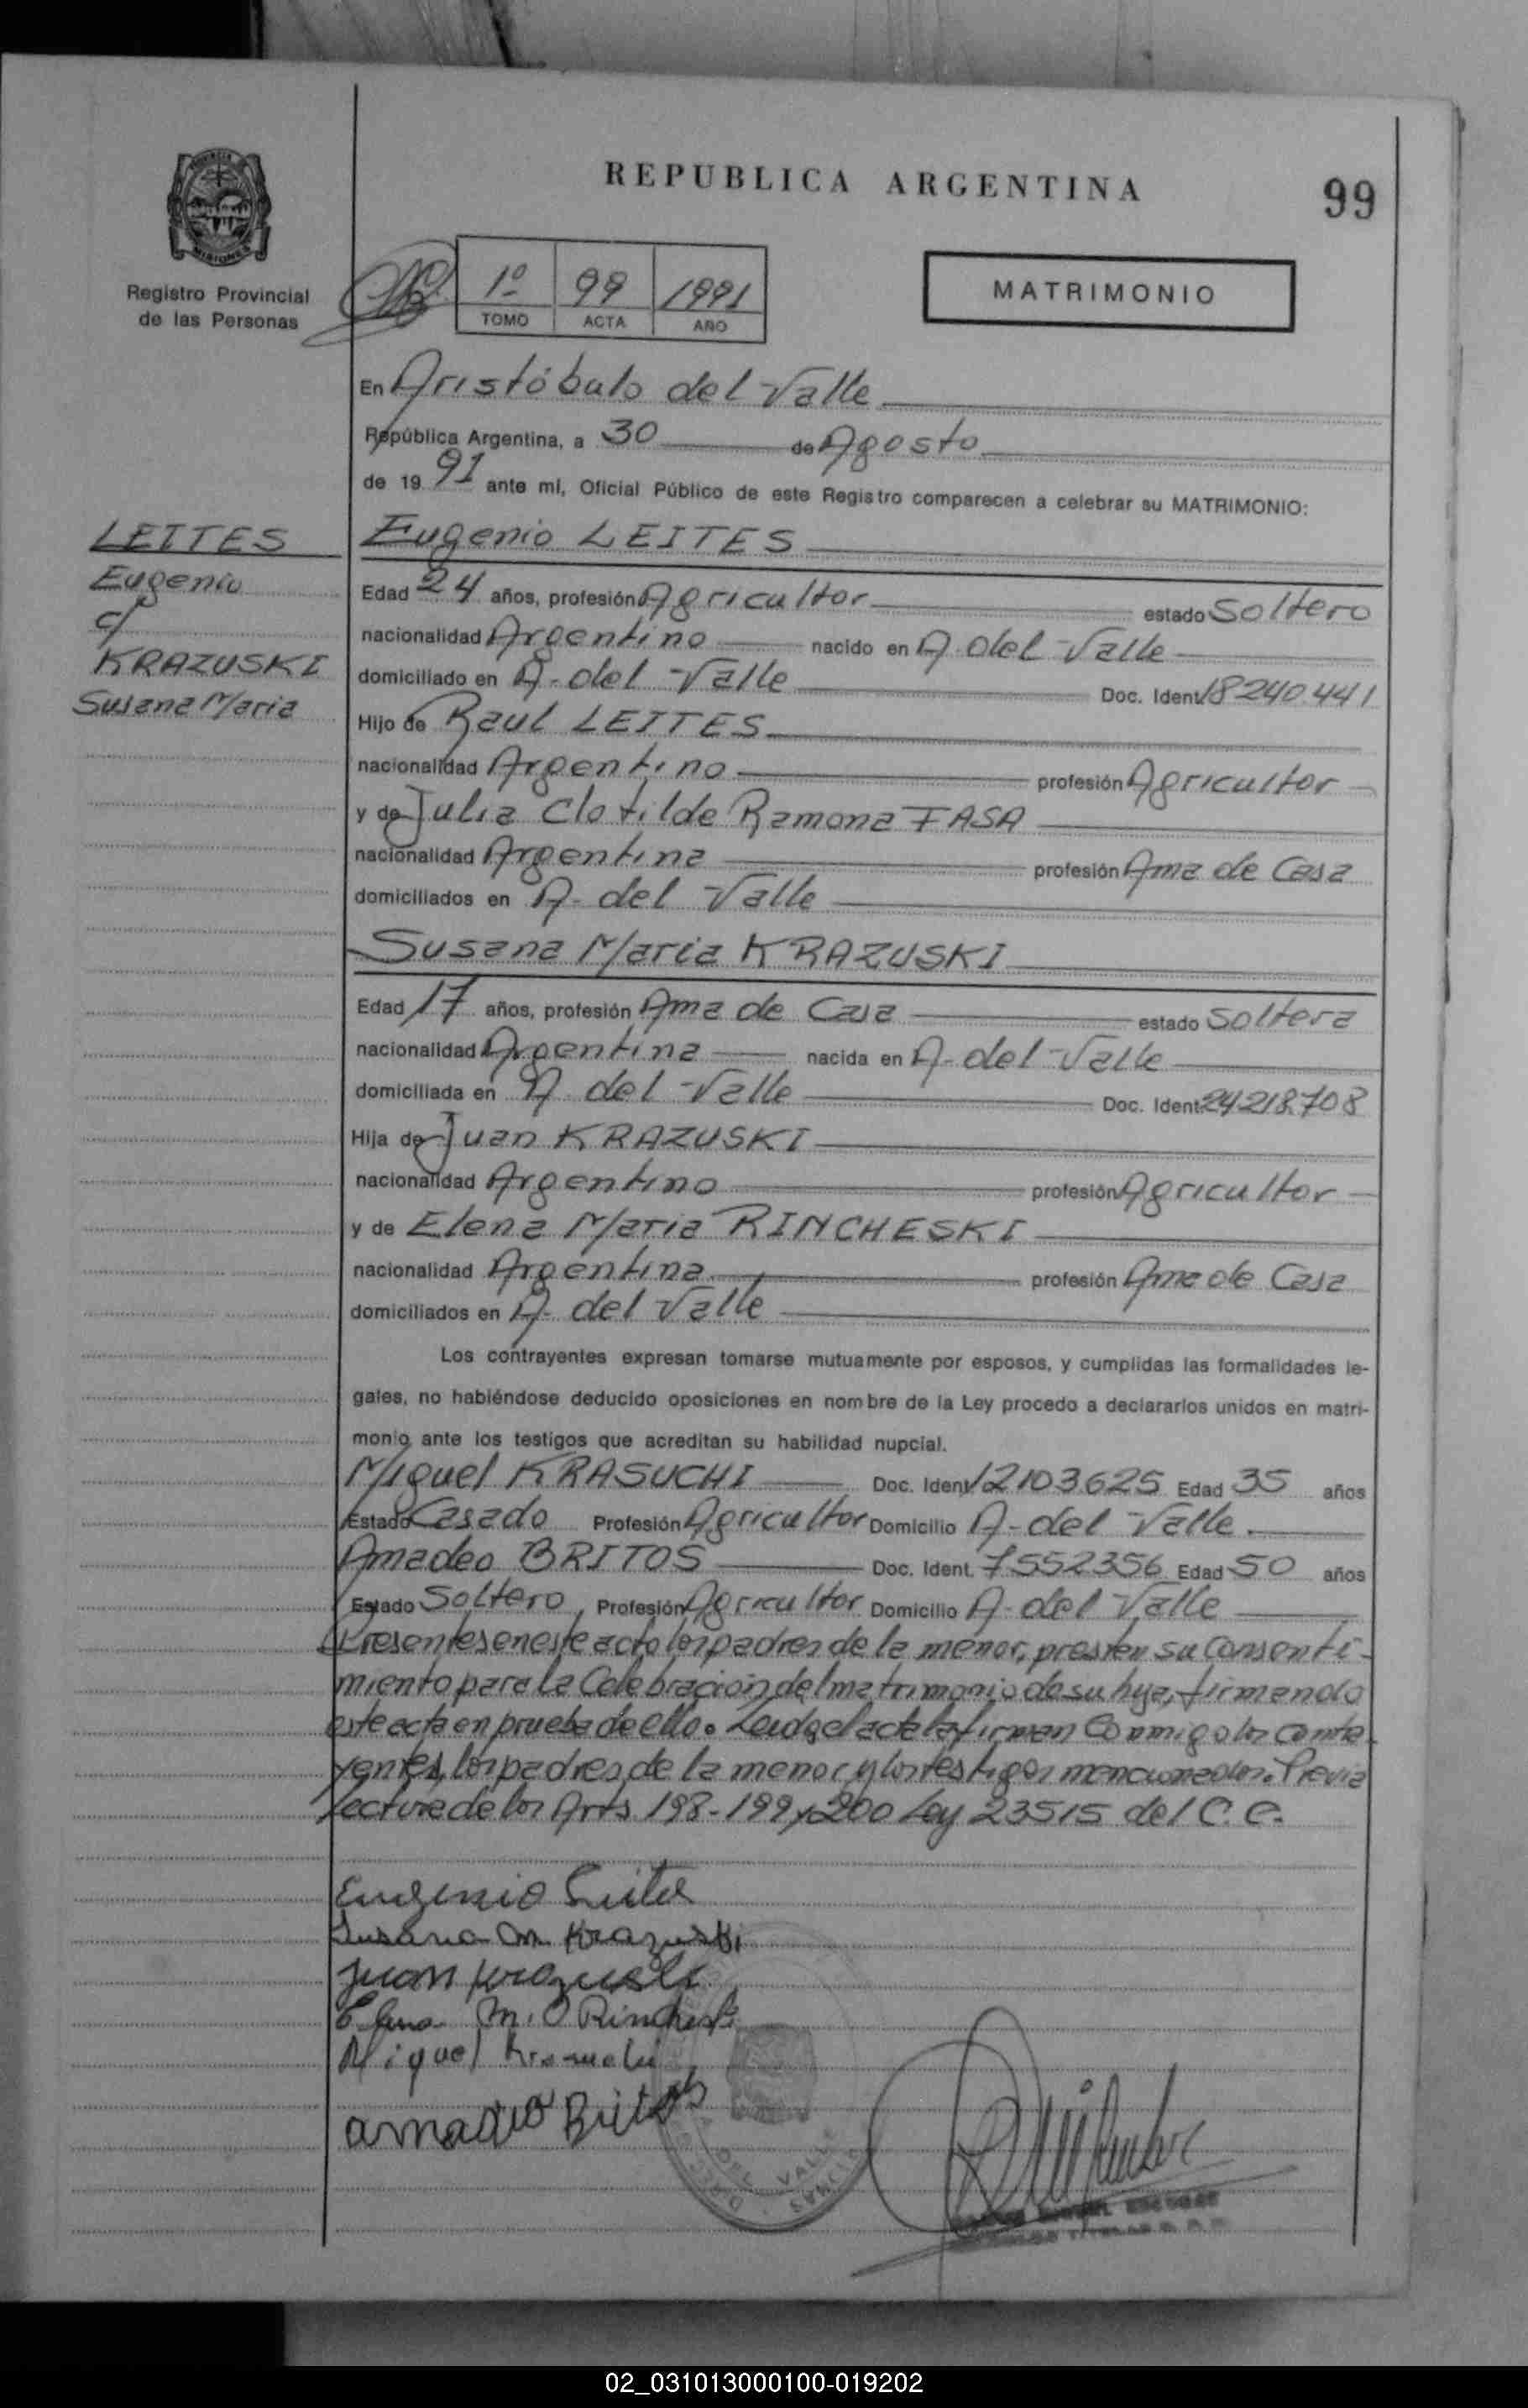 REPUBLICA ARGENTINA
99
PROVINCIA DE
MISIONES
Registro Provincial
de las Personas
1º 99 1991
TOMO ACTA AÑO
MATRIMONIO
En Aristóbulo del Valle
República Argentina, a 30 de Agosto
de 19 91 ante mí, Oficial Público de este Registro comparecen a celebrar su MATRIMONIO:
LEITES
Eugenio
c/
KRAZUSKI
Susana Maria
Eugenio LEITES
Edad 24 años, profesión Agricultor estado Soltero
nacionalidad Argentino nacido en A. del Valle
domiciliado en A. del Valle Doc. Ident. 18240.441
Hijo de Raul LEITES
nacionalidad Argentino profesión Agricultor
y de Julia Clotilde Ramona FASA
nacionalidad Argentina profesión Ama de Casa
domiciliados en A. del Valle
Susana Maria KRAZUSKI
Edad 17 años, profesión Ama de Casa estado Soltera
nacionalidad Argentina nacida en A. del Valle
domiciliada en A. del Valle Doc. Ident. 24218.708
Hija de Juan KRAZUSKI
nacionalidad Argentino profesión Agricultor
y de Elena Maria RINCHESKI
nacionalidad Argentina profesión Ama de Casa
domiciliados en A. del Valle
Los contrayentes expresan tomarse mutuamente por esposos, y cumplidas las formalidades le-
gales, no habiéndose deducido oposiciones en nombre de la Ley procedo a declararlos unidos en matri-
monio ante los testigos que acreditan su habilidad nupcial.
Miguel KRASUCHI Doc. Ident. 12103.625 Edad 35 años
Estado Casado Profesión Agricultor Domicilio A. del Valle.
Amadeo BRITOS Doc. Ident. 7552356 Edad 50 años
Estado Soltero Profesión Agricultor Domicilio A. del Valle
Presentes en este acto los padres de la menor, presten su consenti-
miento para la Celebración del matrimonio de su hija, firmando
este acta en prueba de ello. Leida el acta la firman Conmigo los contra-
yentes, los padres de la menor y los testigos mencionados. Previa
lectura de los Arts 198-199 y 200 Ley 23515 del C. C.
Eugenio Leites
Susana M. Krazuski
Juan Krazuski
Elena M. Rincheski
Miguel Krasuchi
amadeo Britos
DEL VALLE
02_031013000100-019202